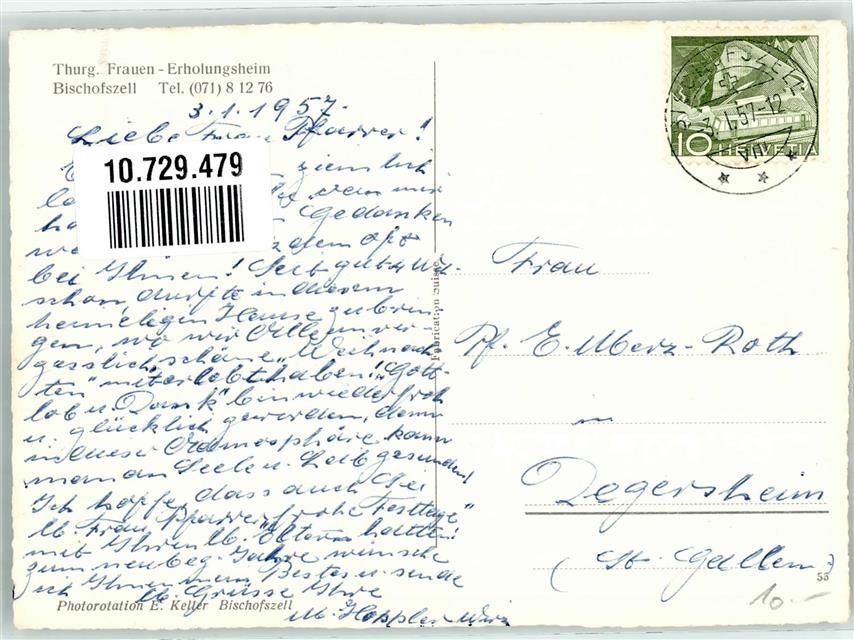 Thurg. Frauen-Erholungsheim
Bischofszell Tel. (071) 8 12 76
3.1.1957.
Liebe Frau Pfarrer!
ziemlich
10.729.479
Gedanken
bei Ihnen! Seit gut 4 W.
schon, durfte in diesem
heimeligen Hause zubrin
gen, wo wir Alle unver-
gesslich, schöne „Weihnach
ten" miterlebt haben! „Gott
lob u. Dank" bin wieder froh
u. glücklich geworden, denn
in dieser Atmosphäre kann
man an Seele u. Leib gesunden!
Ich hoffe, dass auch Sie
lb. Frau Pfarrer „frohe Festtage"
mit Ihren lb. Eltern hatten!
zum neu beg. Jahre wünsche
ich Ihnen nun Bestes u. sende
lb. Grüsse Ihre
M. Hoppler
Photorotation E. Keller Bischofszell
Fabrication Suisse
BISCHOFSZELL
3.I.57-12
10 HELVETIA
Frau
Pf. E. Merz-Roth
in
Degersheim
(St. Gallen)
53
10.-